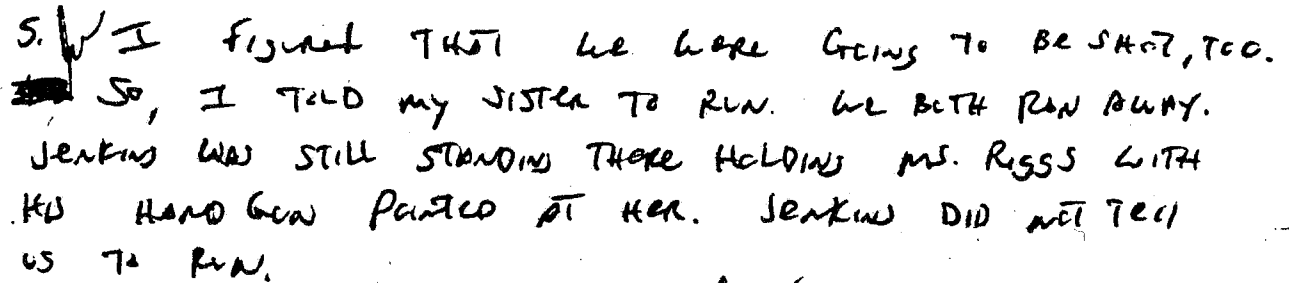 5. I figured THAT we were GOING TO BE SHOT, TOO.
So, I TOLD my SISTER TO RUN. WE BOTH RAN AWAY.
Jenkins WAS STILL STANDING THERE HOLDING MS. RIGGS WITH
HIS HAND GUN POINTED AT HER. Jenkins DID NOT TELL
US TO RUN.